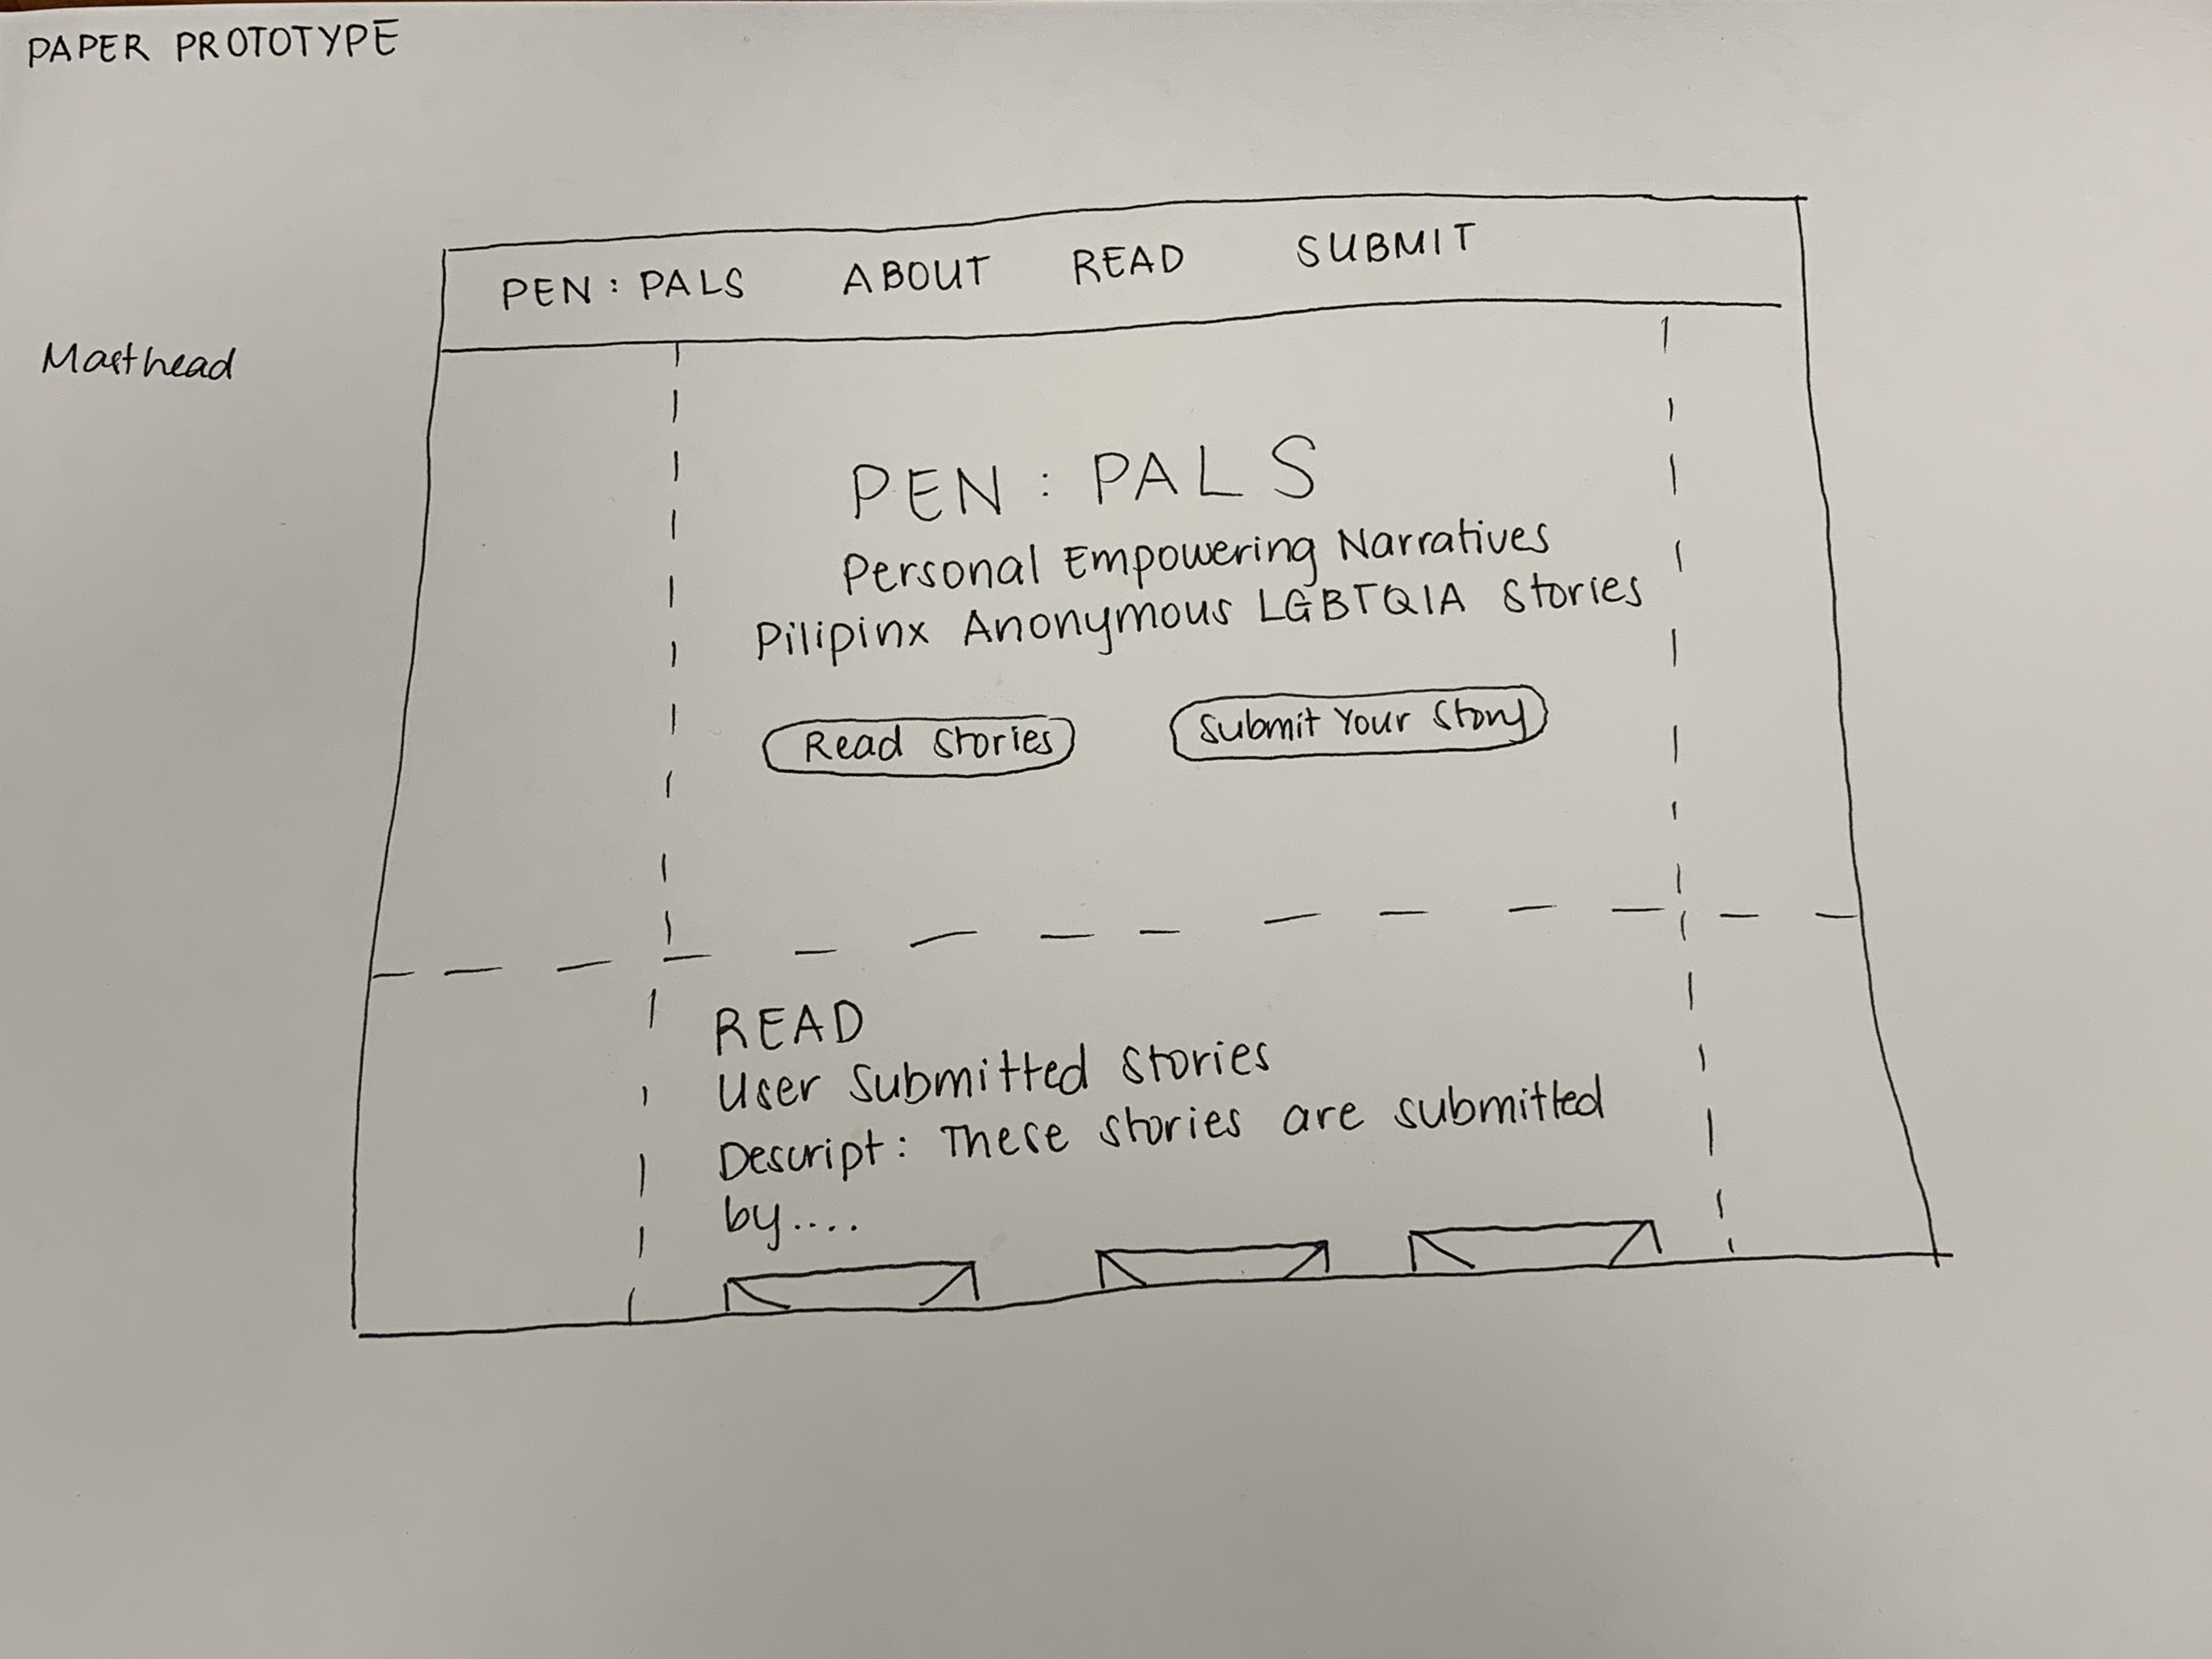 PAPER PROTOTYPE
PEN : PALS ABOUT READ SUBMIT
Masthead
PEN : PALS
Personal Empowering Narratives
Pilipinx Anonymous LGBTQIA Stories
Read Stories Submit Your Story
READ
User Submitted Stories
Descript: These stories are submitted
by....